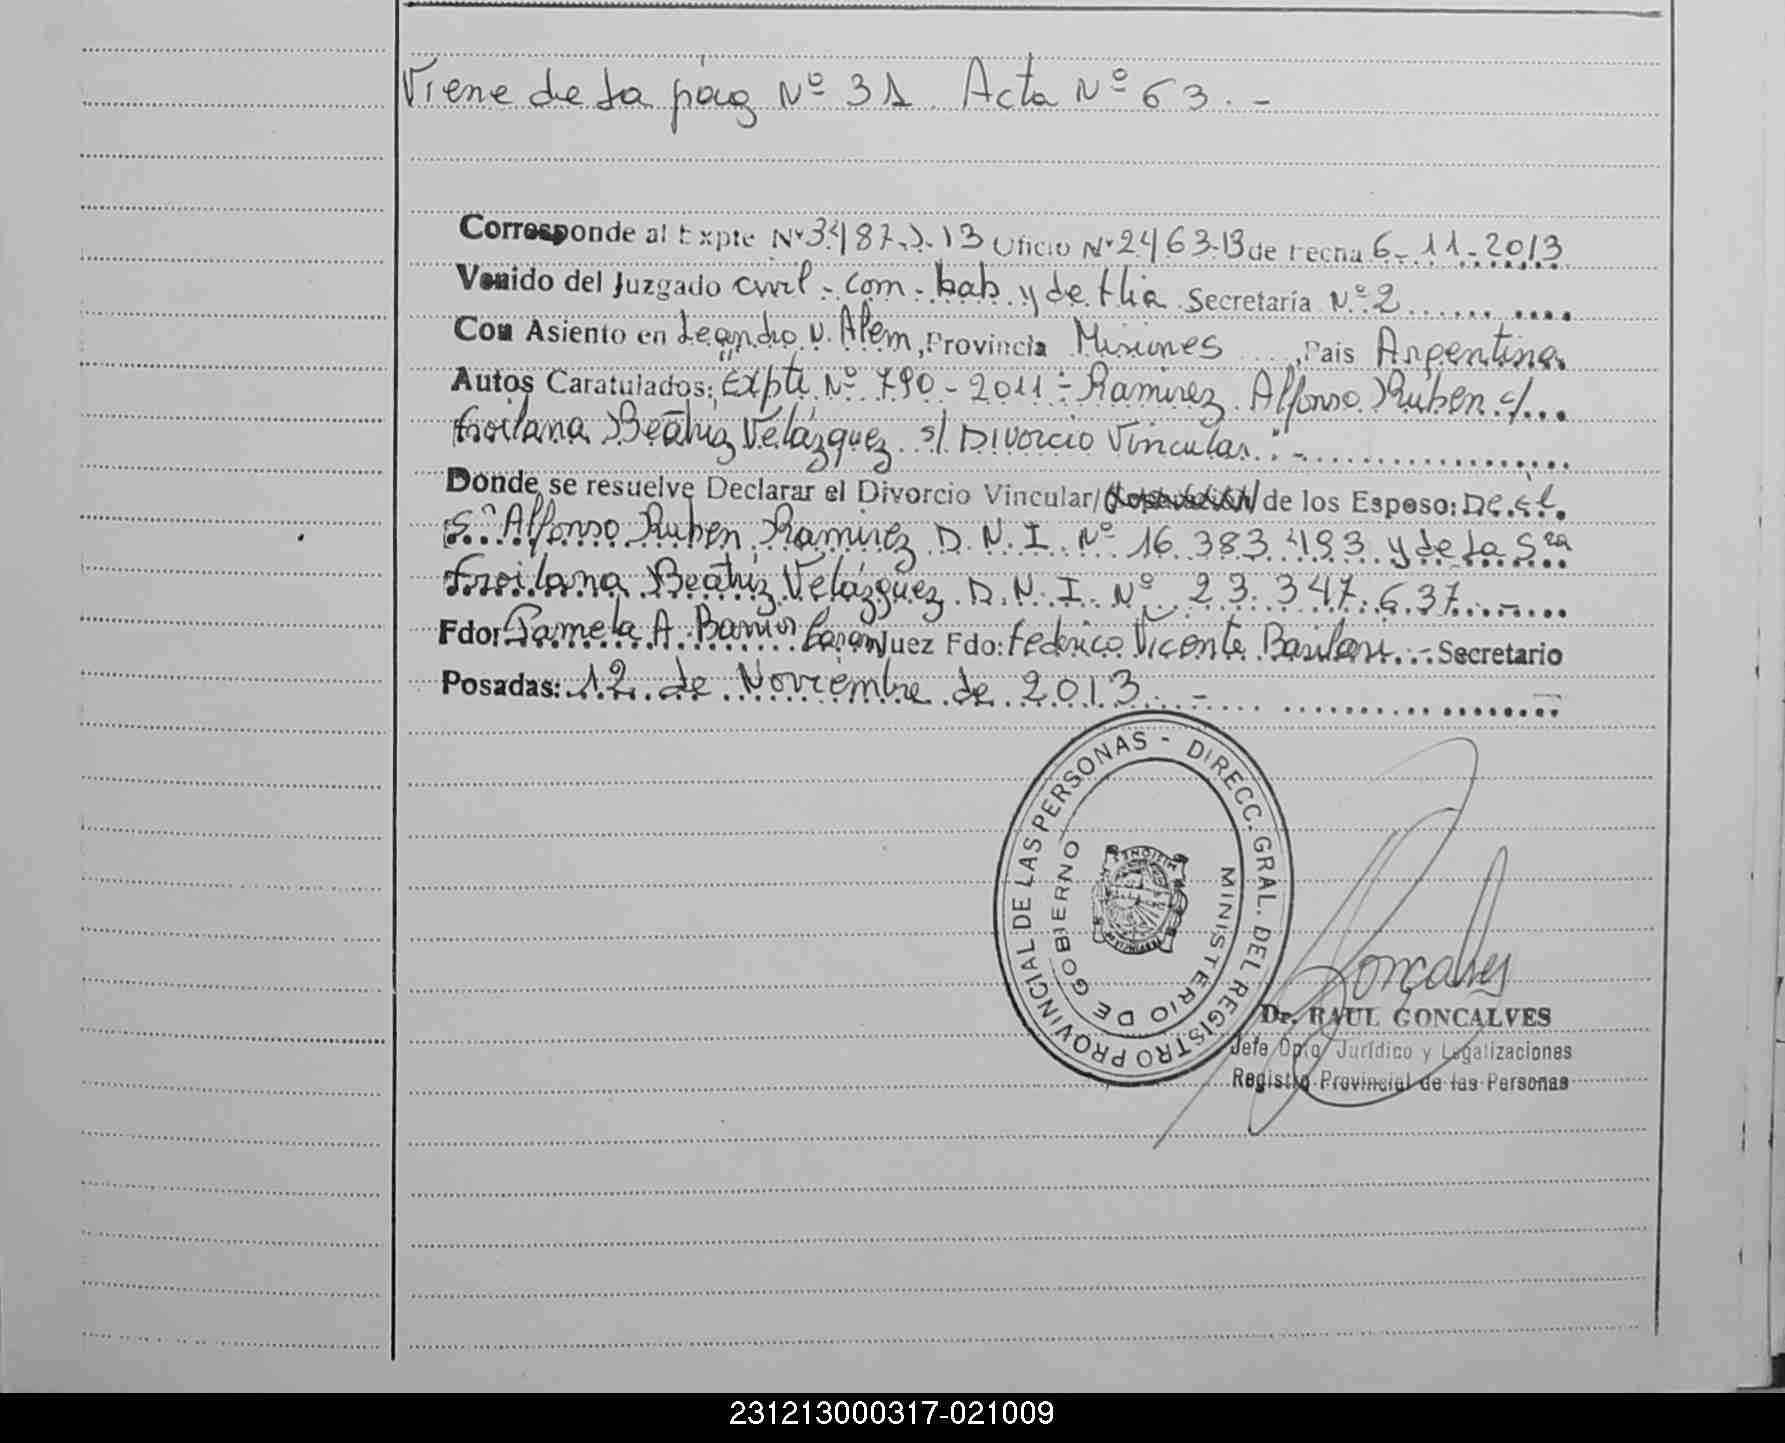 Viene de la pág Nº 31. Acta Nº 63.-
Corresponde al Expte Nº 3487. J. 13 Oficio Nº 2463-13 de Fecha 6-11-2013
Venido del Juzgado Civil - Com - Lab. y de Flia Secretaría Nº 2
Con Asiento en Leandro N. Alem, Provincia Misiones, Pais Argentina.
Autos Caratulados: "Expte Nº 790-2011 - Ramirez Alfonso Rúben c/
Froilana Beatriz Velázquez s/ Divorcio Vincular".-
Donde se resuelve Declarar el Divorcio Vincular/ de los Esposo: Del
Sr Alfonso Ruben Ramirez D.N.I. Nº 16.383.493 y de la Sra
Froilana Beatriz Velázquez D.N.I. Nº 23.347.637.-
Fdo: Pamela A. Barrios Juez Fdo: Federico Vicente .- Secretario
Posadas: 12 de Noviembre de 2013.-
DIRECC. GRAL. DEL REGISTRO PROVINCIAL DE LAS PERSONAS -
MINISTERIO DE GOBIERNO
MISIONES
Goncalves
Dr. RAUL GONCALVES
Jefe Dpto Jurídico y Legalizaciones
Registro Provincial de las Personas
231213000317-021009